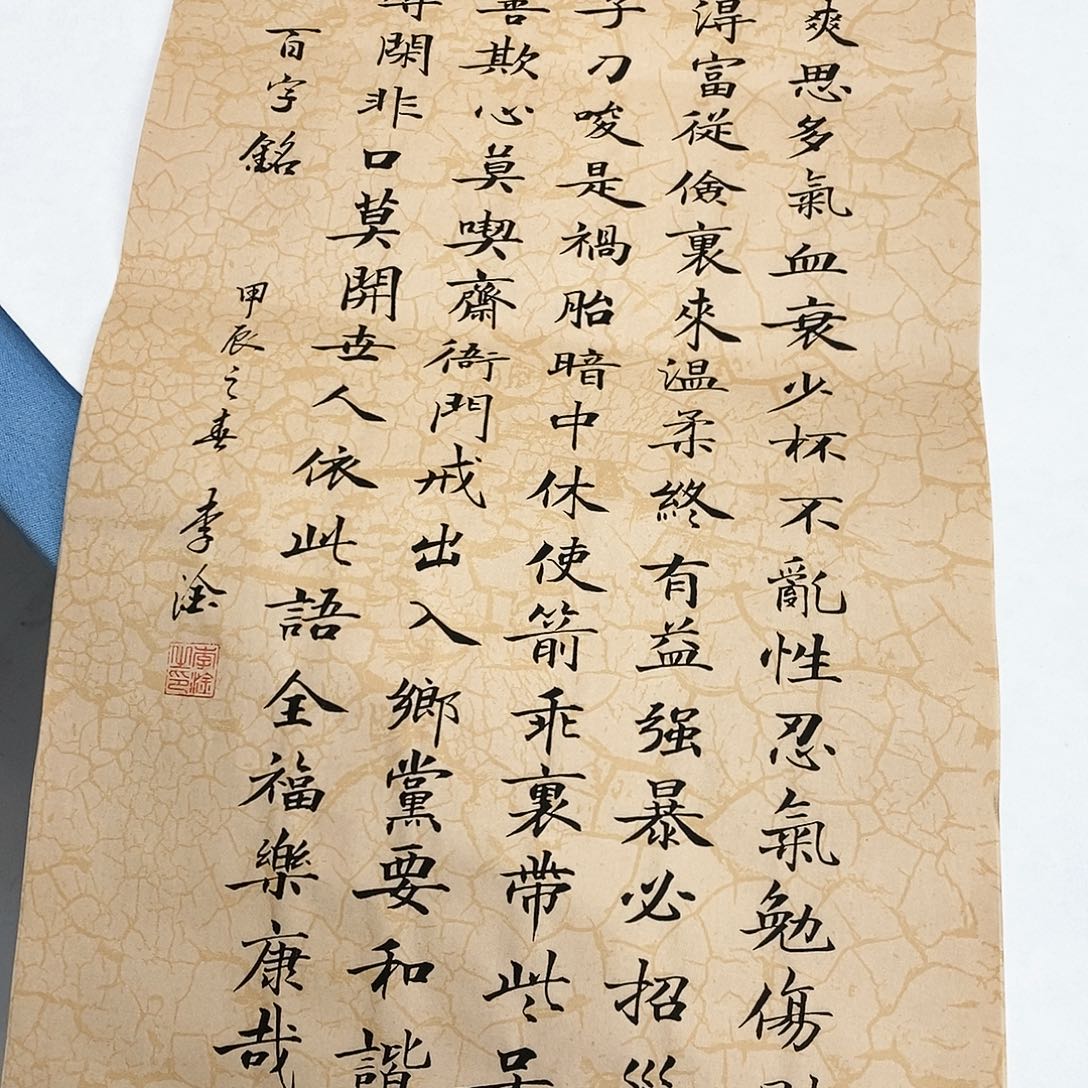 爽思多氣血衰少杯不亂性忍氣勉傷
得富從儉裏來温柔終有益强暴必招
子刀唆是禍胎暗中休使箭乖裏帶些
善欺心莫喫齋衙門戒出入鄉黨要和諧
閑非口莫開世人依此語全福樂康哉
百字銘
甲辰之春 李淦
李淦之印